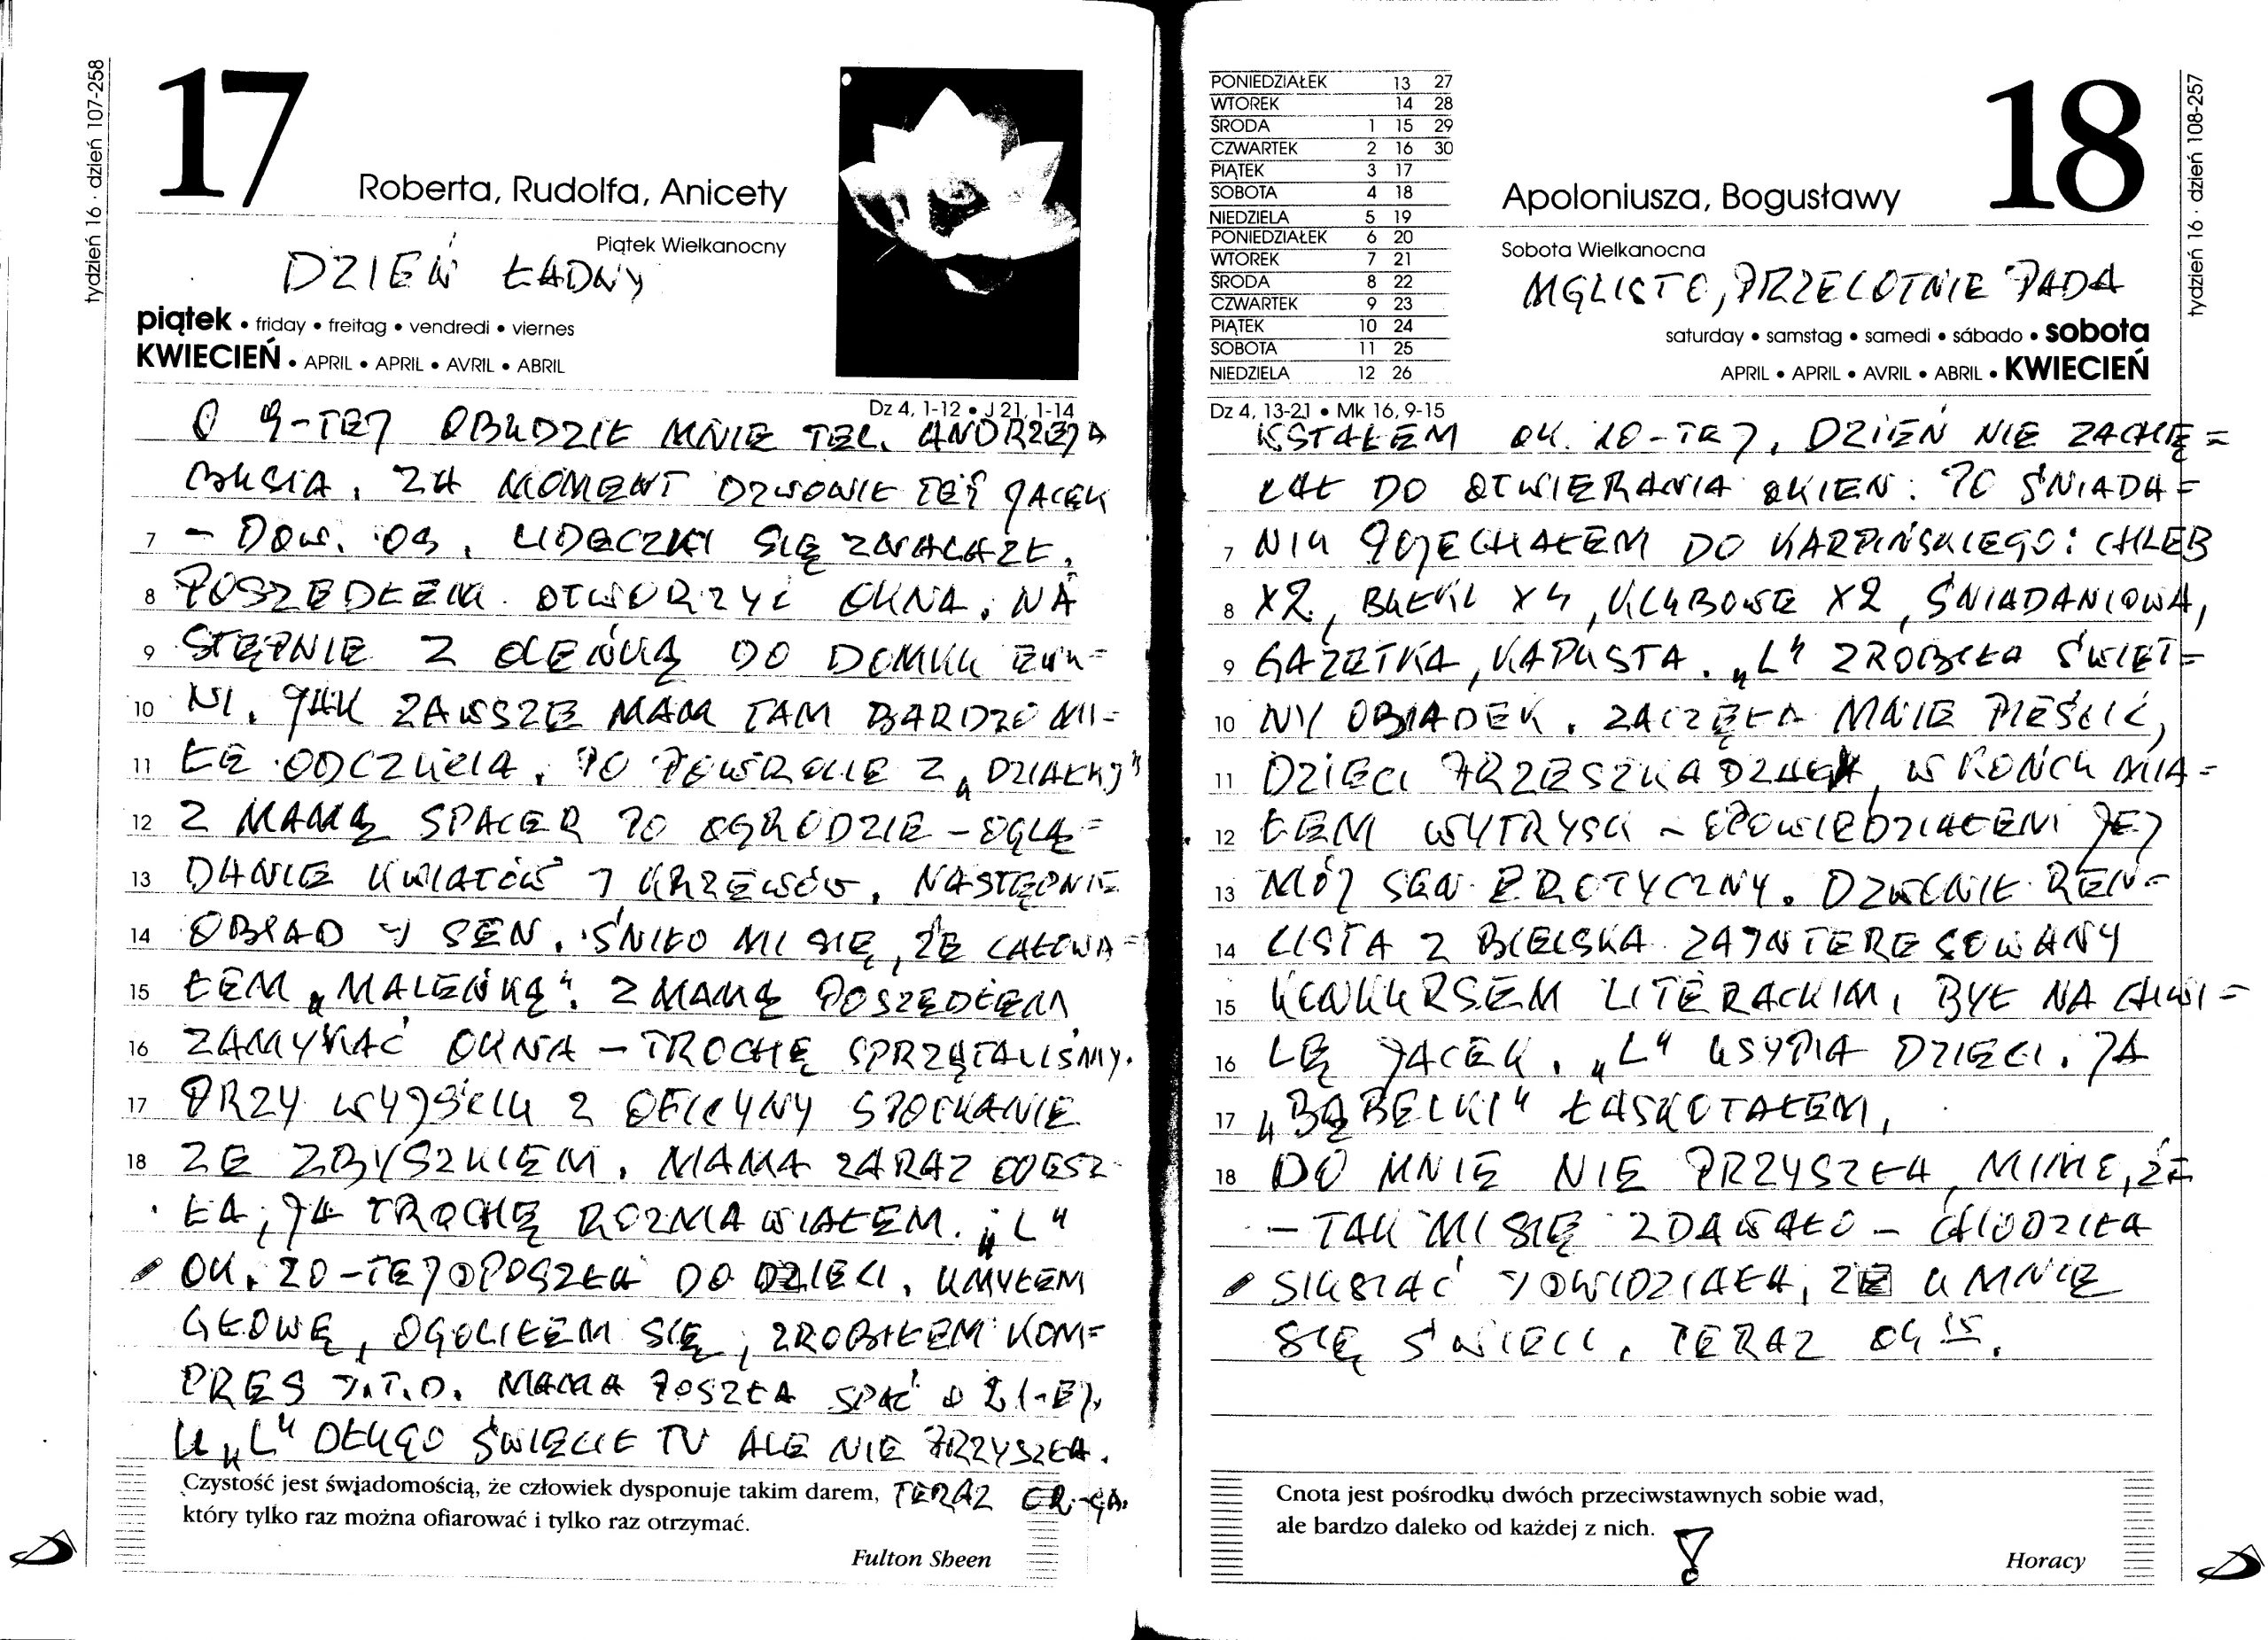 tydzień 16 · dzień 107-258
17
Roberta, Rudolfa, Anicety
Piątek Wielkanocny
DZIEŃ ŁADNY
piątek • friday • freitag • vendredi • viernes
KWIECIEŃ • APRIL • APRIL • AVRIL • ABRIL
Dz 4, 1-12 • J 21, 1-14
O 9-TEJ OBUDZIŁ MNIE TEL. ANDRZEJA
BUSIA. ZA MOMENT DZWONIŁ TEŻ JACEK
7 – DOW. OS. LIDECZKI SIĘ ZNALAZŁ.
8 POSZEDŁEM OTWORZYĆ OKNA. NA
9 STĘPNIE Z OLEŃKĄ DO DOMKU EWU=
10 NI. JAK ZAWSZE MAM TAM BARDZO MI=
11 ŁE ODCZUCIA. PO POWROCIE Z „DZIAŁKI"
12 Z MAMĄ SPACER PO OGRODZIE – OGLĄ=
13 DANIE KWIATÓW I KRZEWÓW. NASTĘPNIE
14 OBIAD I SEN. ŚNIŁO MI SIĘ, ŻE CAŁOWA=
15 ŁEM „MALEŃKĄ". Z MAMĄ POSZEDŁEM
16 ZAMYKAĆ OKNA – TROCHĘ SPRZĄTALIŚMY.
17 PRZY WYJŚCIU Z OFICYNY SPOTKANIE
18 ZE ZBYSZKIEM. MAMA ZARAZ ODESZ-
ŁA, JA TROCHĘ ROZMAWIAŁEM. „L"
OK. 20-TEJ POSZŁA DO DZIECI. UMYŁEM
GŁOWĘ, OGOLIŁEM SIĘ, ZROBIŁEM KOM=
PRES I.T.D. MAMA POSZŁA SPAĆ O 21-EJ.
U „L" DŁUGO ŚWIECIŁ TV ALE NIE PRZYSZŁA.
Czystość jest świadomością, że człowiek dysponuje takim darem, TERAZ
który tylko raz można ofiarować i tylko raz otrzymać.
Fulton Sheen
PONIEDZIAŁEK 13 27
WTOREK 14 28
ŚRODA 1 15 29
CZWARTEK 2 16 30
PIĄTEK 3 17
SOBOTA 4 18
NIEDZIELA 5 19
PONIEDZIAŁEK 6 20
WTOREK 7 21
ŚRODA 8 22
CZWARTEK 9 23
PIĄTEK 10 24
SOBOTA 11 25
NIEDZIELA 12 26
18
tydzień 16 · dzień 108-257
Apoloniusza, Bogusławy
Sobota Wielkanocna
MGLISTO, PRZELOTNIE PADA
saturday • samstag • samedi • sábado • sobota
APRIL • APRIL • AVRIL • ABRIL • KWIECIEŃ
Dz 4, 13-21 • Mk 16, 9-15
WSTAŁEM OK. 10-TEJ. DZIEŃ NIE ZACHĘ=
CAŁ DO OTWIERANIA OKIEN. PO ŚNIADA=
7 NIU POJECHAŁEM DO KARPIŃSKIEGO: CHLEB
8 X2, BUŁKI X4, KLUBOWE X2, ŚNIADANIOWA,
9 GAZETKA, KAPUSTA. „L" ZROBIŁA ŚWIET=
10 NY OBIADEK. ZACZĘŁA MNIE PIEŚCIĆ,
11 DZIECI PRZESZKADZAŁY, W KOŃCU MIA=
12 ŁEM WYTRYSK – OPOWIEDZIAŁEM JEJ
13 MÓJ SEN EROTYCZNY. DZWONIŁ REN=
14 CISTA Z BIELSKA ZAINTERESOWANY
15 KONKURSEM LITERACKIM, BYŁ NA CHWI=
16 LĘ JACEK. „L" USYPIA DZIECI. JA
17 „BĄBELKI" ŁASKOTAŁEM,
18 DO MNIE NIE PRZYSZŁA, MIMO, ŻE
– TAK MI SIĘ ZDAWAŁO – CHODZIŁA
SIUSIAĆ I WIDZIAŁA, ŻE U MNIE
SIĘ ŚWIECI. TERAZ 04 15.
Cnota jest pośrodku dwóch przeciwstawnych sobie wad,
ale bardzo daleko od każdej z nich. !
Horacy